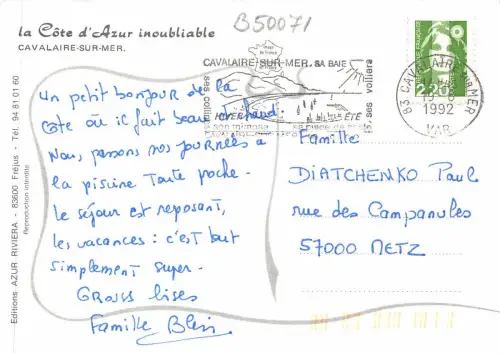 B50071
la Côte d'Azur inoubliable
CAVALAIRE-SUR-MER.
CAVALAIRE-SUR-MER. SA BAIE
ses voiliers
HIVER
ÉTÉ
son mimosa
2,20
83 CAVALAIRE SUR MER
19-8
1992
VAR
Un petit bonjour de la
côte où il fait beau et chaud.
Nous passons nos journées à
la piscine toute proche.
le séjour est reposant,
les vacances : c'est tout
simplement super.
GROSSES bises
Famille Blein
Famille
DIATCHENKO Paul
rue des Campanules
57000 METZ
Editions AZUR RIVIERA - 83600 Fréjus - Tél. 94 81 01 60
Reproduction interdite